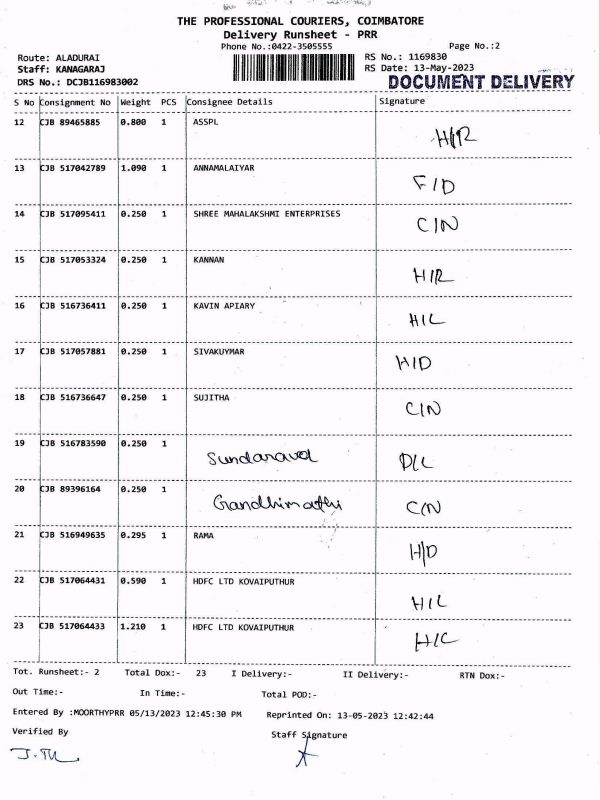 THE PROFESSIONAL COURIERS, COIMBATORE
Delivery Runsheet - PRR
Phone No.:0422-3505555 Page No.:2
Route: ALADURAI RS No.: 1169830
Staff: KANAGARAJ RS Date: 13-May-2023
DRS No.: DCJB116983002 DOCUMENT DELIVERY
S No Consignment No Weight PCS Consignee Details Signature
12 CJB 89465885 0.800 1 ASSPL H/R
13 CJB 517042789 1.090 1 ANNAMALAIYAR F/D
14 CJB 517095411 0.250 1 SHREE MAHALAKSHMI ENTERPRISES C/N
15 CJB 517053324 0.250 1 KANNAN H/R
16 CJB 516736411 0.250 1 KAVIN APIARY H/L
17 CJB 517057881 0.250 1 SIVAKUYMAR H/D
18 CJB 516736647 0.250 1 SUJITHA C/N
19 CJB 516783590 0.250 1 Sundaravel D/L
20 CJB 89396164 0.250 1 Gandhimathi C/N
21 CJB 516949635 0.295 1 RAMA H/D
22 CJB 517064431 0.590 1 HDFC LTD KOVAIPUTHUR H/L
23 CJB 517064433 1.210 1 HDFC LTD KOVAIPUTHUR H/C
Tot. Runsheet:- 2 Total Dox:- 23 I Delivery:- II Delivery:- RTN Dox:-
Out Time:- In Time:- Total POD:-
Entered By :MOORTHYPRR 05/13/2023 12:45:30 PM Reprinted On: 13-05-2023 12:42:44
Verified By Staff Signature